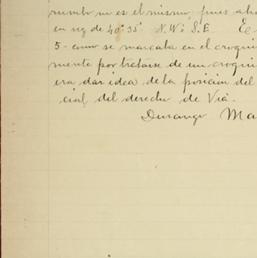 rumbo no es el mismo, pues aho
en vez de 40° 35' N.W. S.E. El
5 - como se marcaba en el croqui
mente por tratarse de un croqui
era dar idea de la posicion del
cial del derecho de Via.
Durango Ma